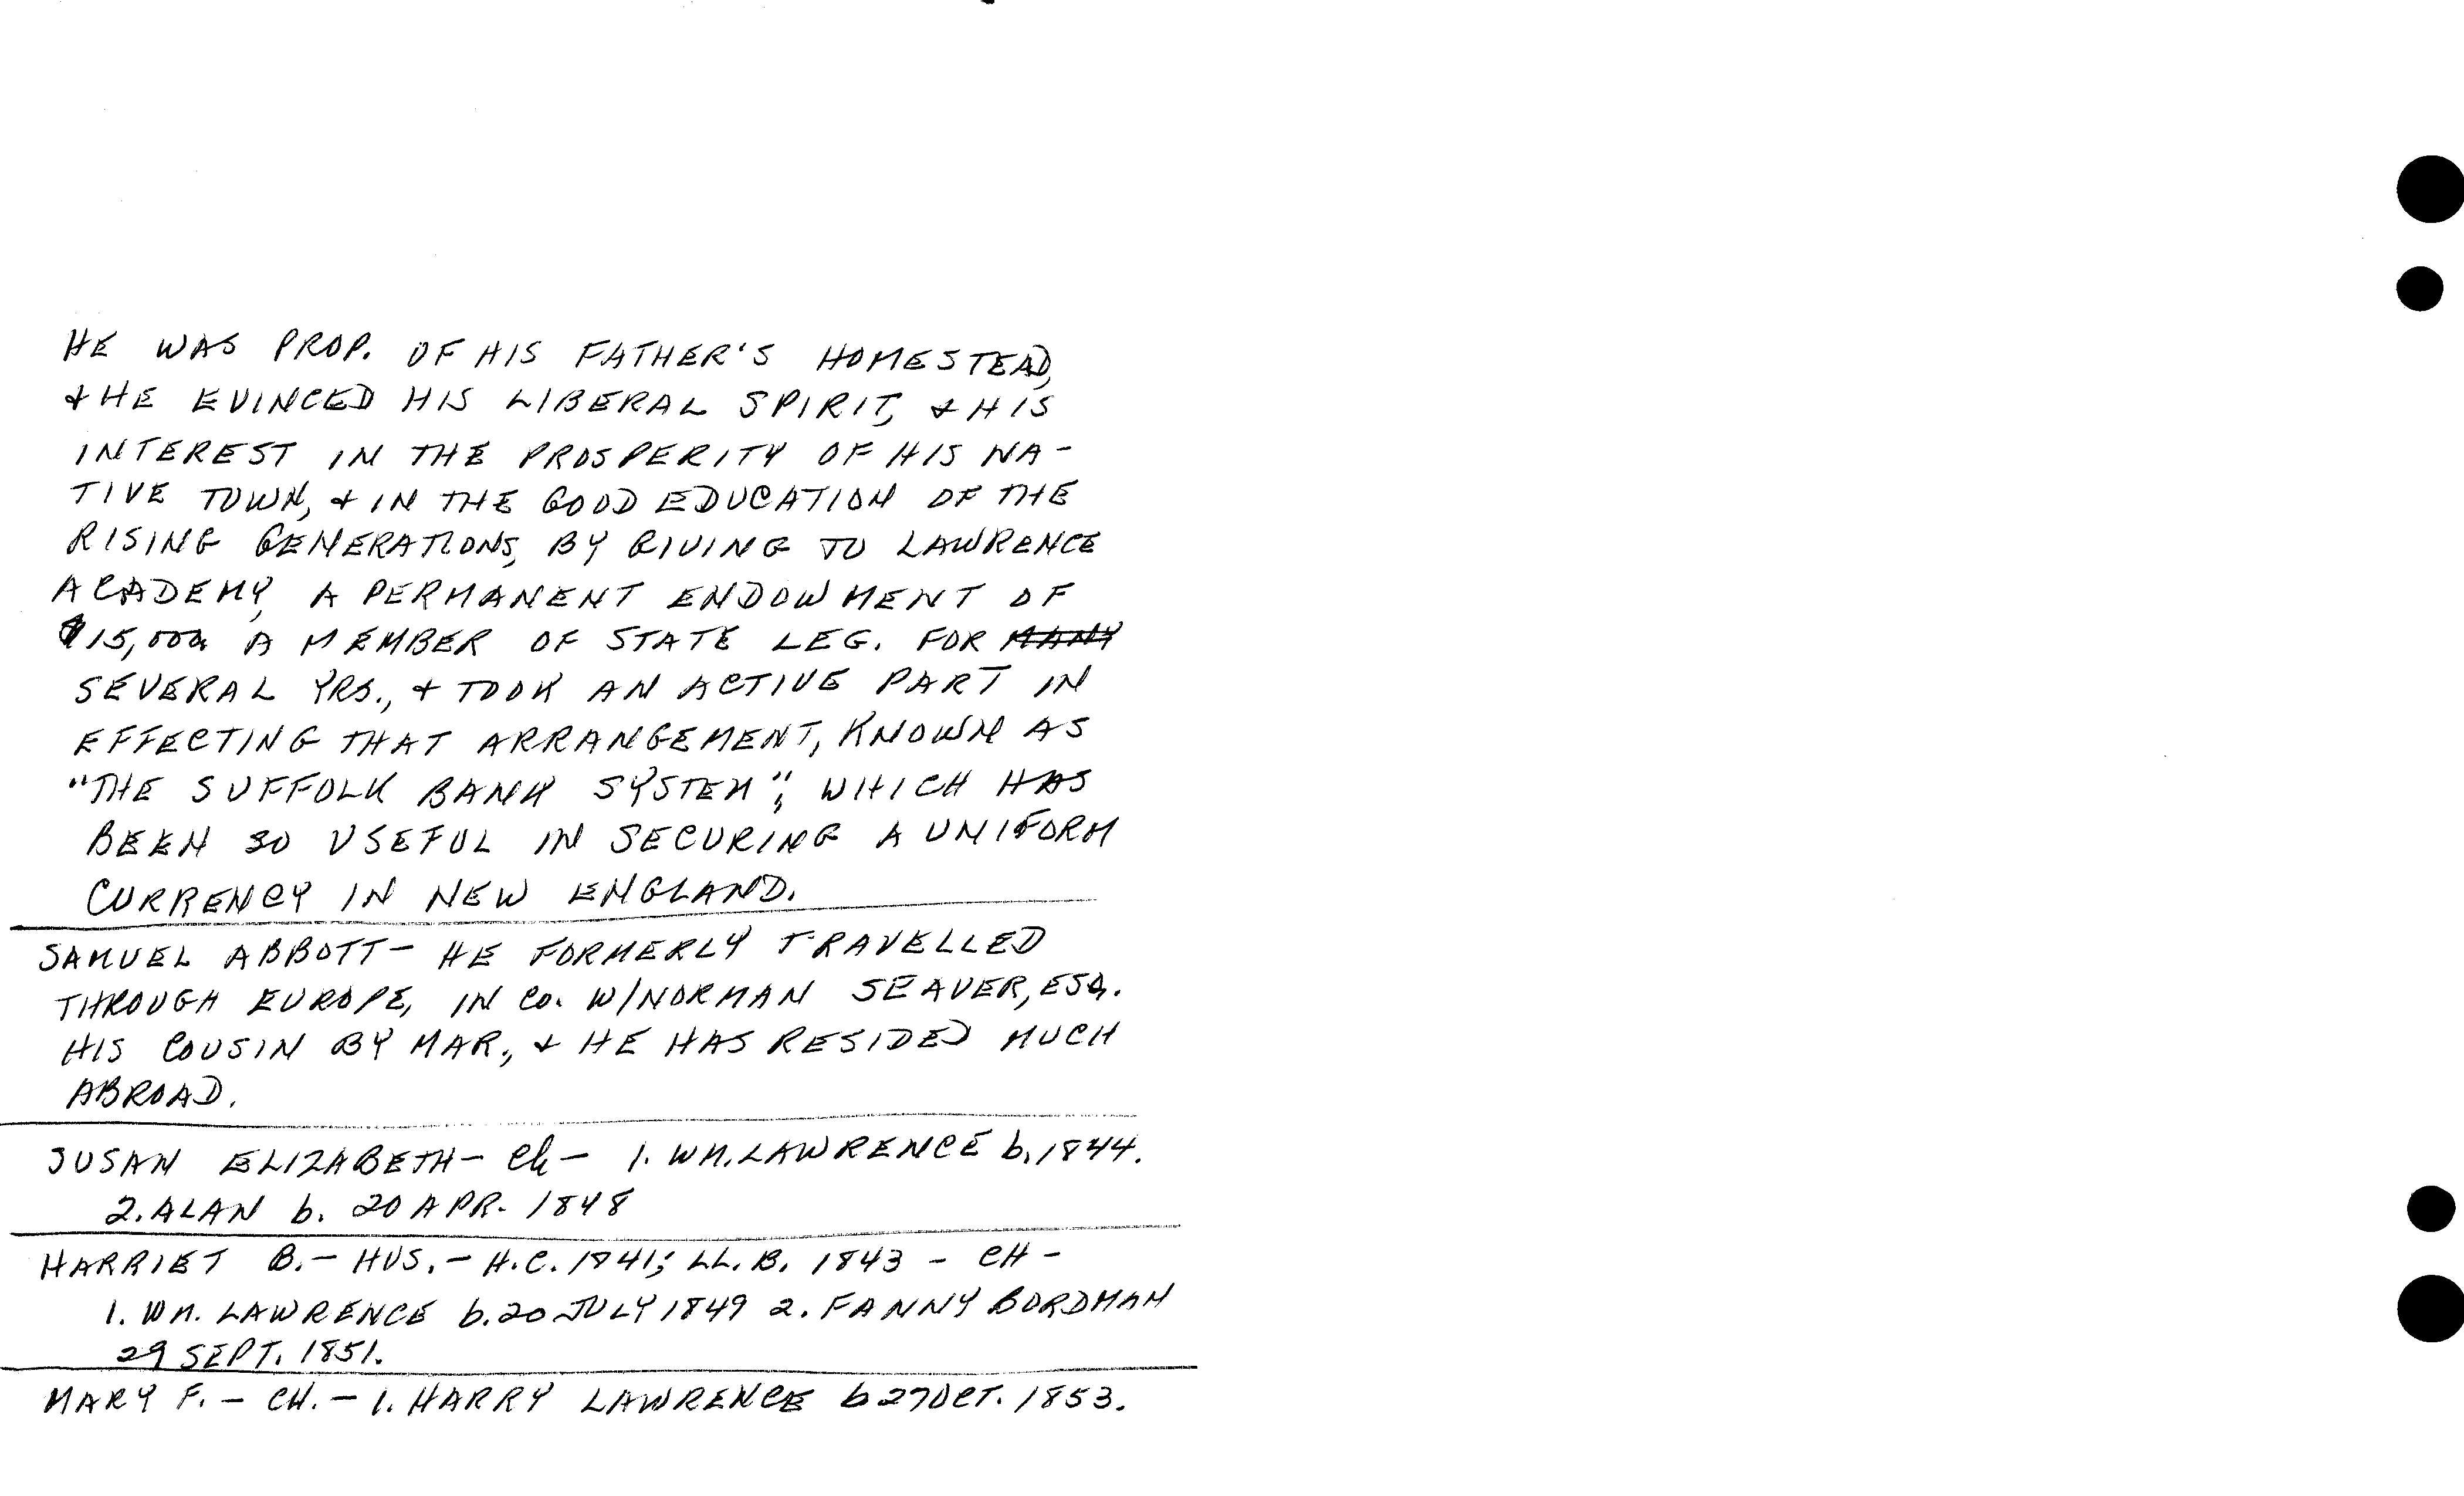 HE WAS PROP. OF HIS FATHER'S HOMESTEAD,
& HE EVINCED HIS LIBERAL SPIRIT, & HIS
INTEREST IN THE PROSPERITY OF HIS NA-
TIVE TOWN, & IN THE GOOD EDUCATION OF THE
RISING GENERATIONS, BY GIVING TO LAWRENCE
ACADEMY, A PERMANENT ENDOWMENT OF
$15,000. A MEMBER OF STATE LEG. FOR MANY
SEVERAL YRS., & TOOK AN ACTIVE PART IN
EFFECTING THAT ARRANGEMENT, KNOWN AS
"THE SUFFOLK BANK SYSTEM", WHICH HAS
BEEN SO USEFUL IN SECURING A UNIFORM
CURRENCY IN NEW ENGLAND.
SAMUEL ABBOTT - HE FORMERLY TRAVELLED
THROUGH EUROPE, IN CO. W/NORMAN SEAVER, ESQ.
HIS COUSIN BY MAR., & HE HAS RESIDED MUCH
ABROAD.
SUSAN ELIZABETH - Ch - 1. WM. LAWRENCE b. 1844.
2. ALAN b. 20 APR. 1848
HARRIET B. - HUS. - H.C. 1841; LL.B. 1843 - CH -
1. WM. LAWRENCE b. 20 JULY 1849 2. FANNY BORDMAN
29 SEPT. 1851.
MARY F. - CH. - 1. HARRY LAWRENCE b 27 OCT. 1853.